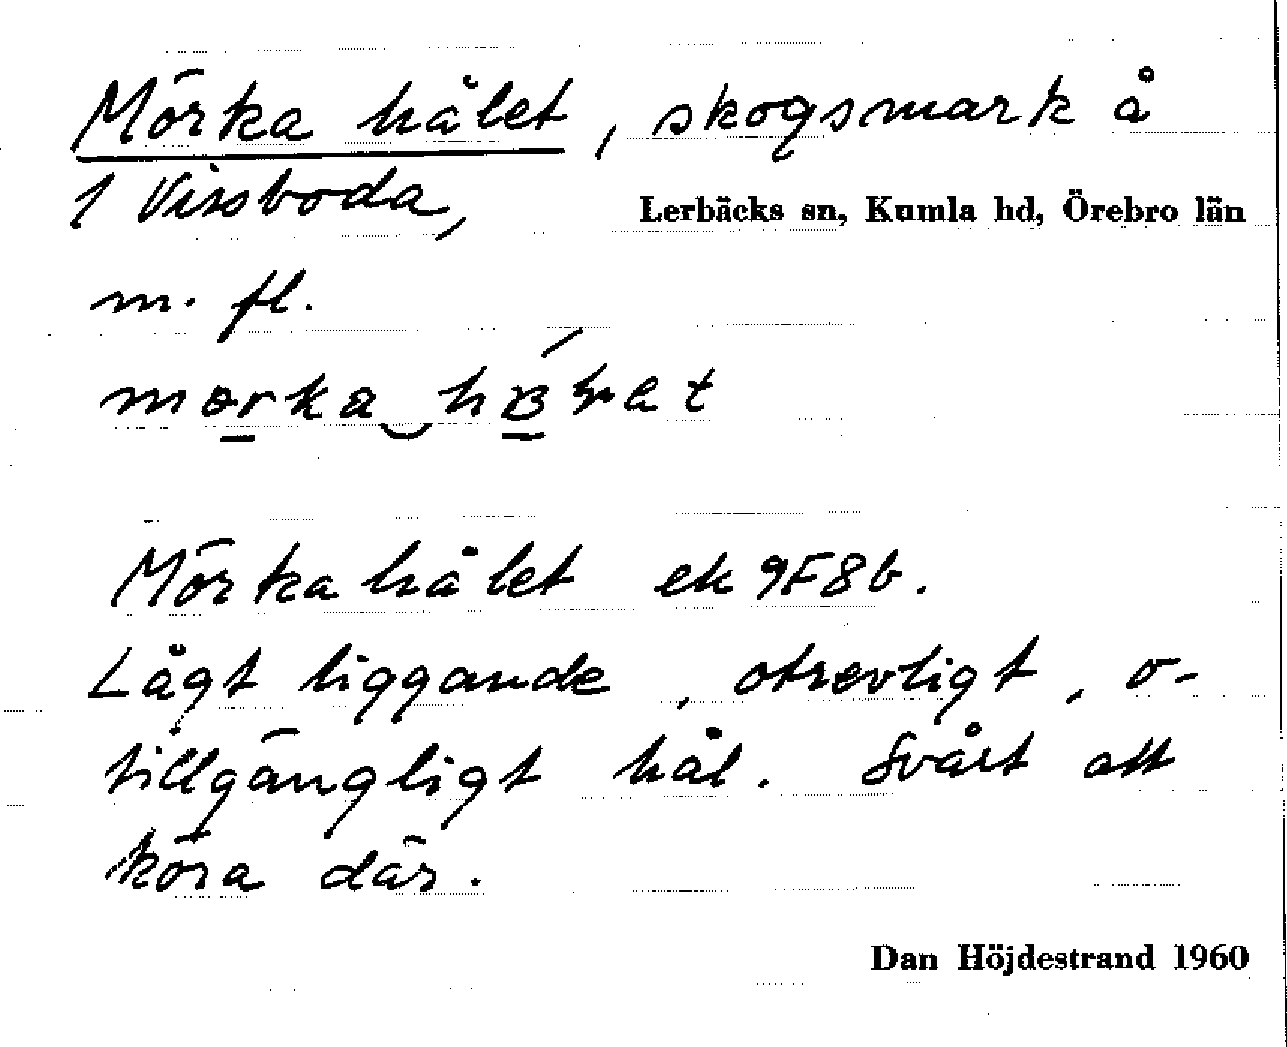 Mörka hålet, skogsmark å
1 Vissboda, Lerbäcks sn, Kumla hd, Örebro län
m. fl.
Mörka hålet ek 9F8b.
Lågt liggande, otrevligt, o-
tillgängligt hål. Svårt att
köra där.
Dan Höjdestrand 1960